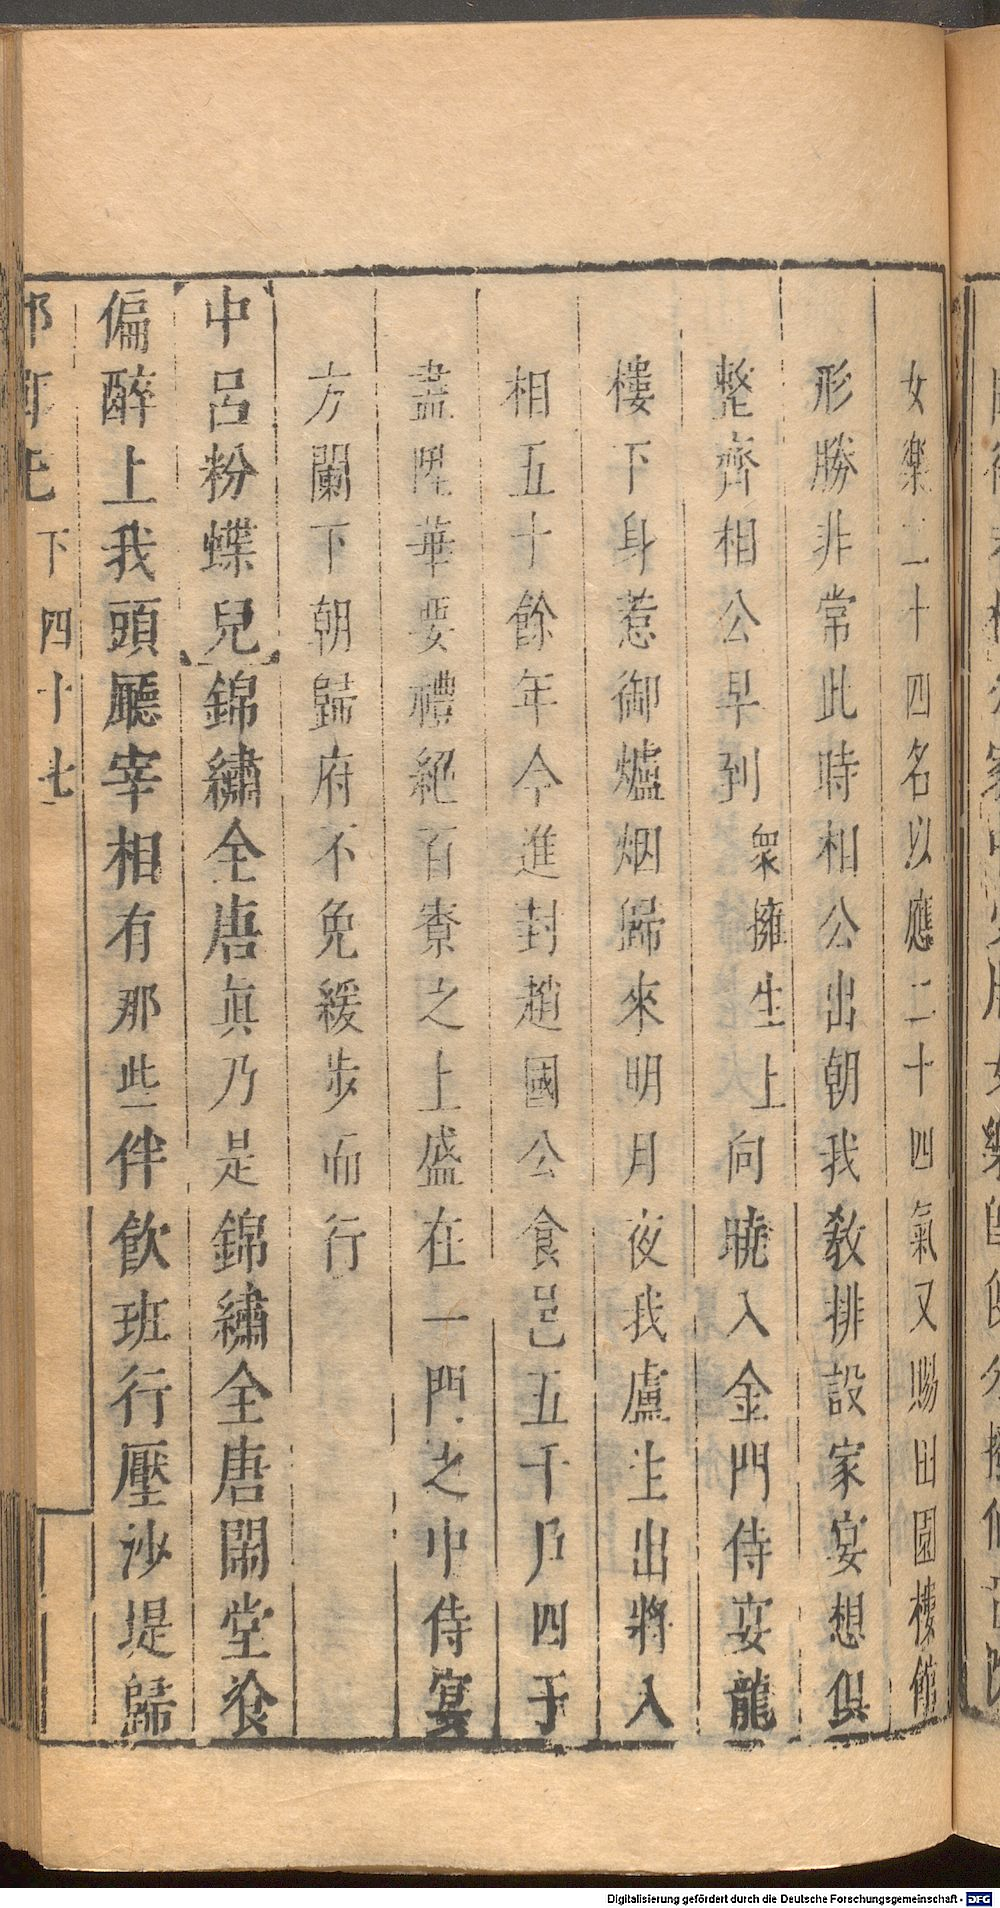 女樂二十四名以應二十四氣又賜田園樓館
形勝非常此時相公出朝我教排設家宴想俱
整齊相公早到衆擁生上向曉入金門侍宴龍
樓下身惹御爐烟歸來明月夜我盧生出將入
相五十餘年今進封趙國公食邑五千戶四子
盡陞華要禮絕百寮之上盛在一門之中侍宴
方闌下朝歸府不免緩步而行
【中呂粉蝶兒】錦繡全唐眞乃是錦繡全唐閙堂飡
偏醉上我頭廳宰相有那些伴飲班行壓沙堤歸
下四十七
Digitalisierung gefördert durch die Deutsche Forschungsgemeinschaft - DFG